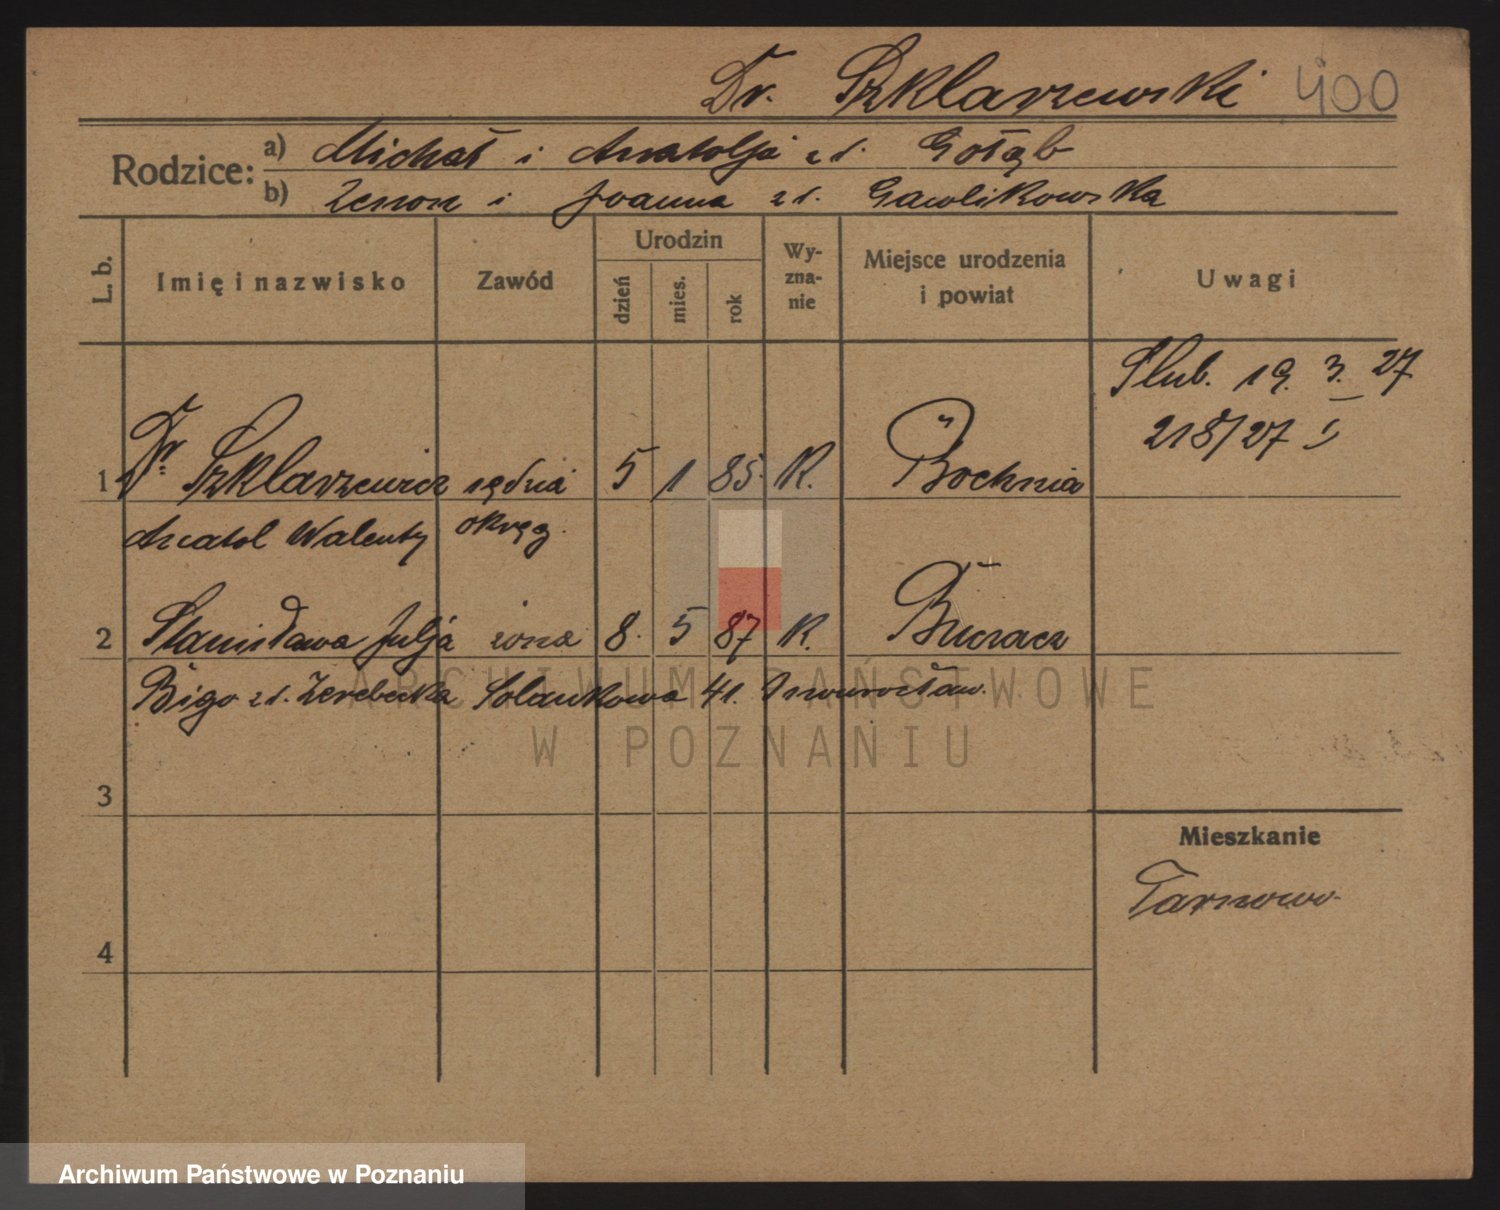 Dr. Szklarzewski 400
Rodzice: a) Michał i Anatolja z d. Gołąb
b) Zenon i Joanna z d. Gawlikowska
L. b. Imię i nazwisko Zawód Urodzin dzień mies. rok Wy-zna-nie Miejsce urodzenia i powiat Uwagi
Slub. 19. 3. 27
218/27
1 Dr Szklarzewicz sędzia 5 1 85. K. Bochnia
Anatol Walenty okręg.
2 Stanisława Julja żona 8. 5 87 K. Buczacz
Bigo z d. Zerebecka Solankowa 41. Inowrocław.
3
Mieszkanie
Tarnowo.
4
ARCHIWUM PAŃSTWOWE
W POZNANIU
Archiwum Państwowe w Poznaniu